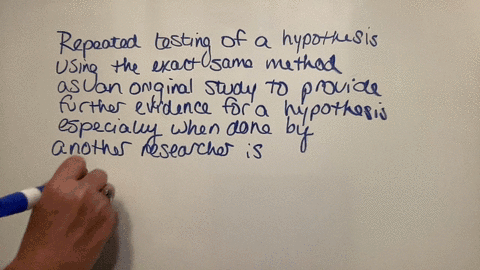 Repeated testing of a hypothesis
using the exact same method
as an original study to provide
further evidence for a hypothesis
especially when done by
another researcher is